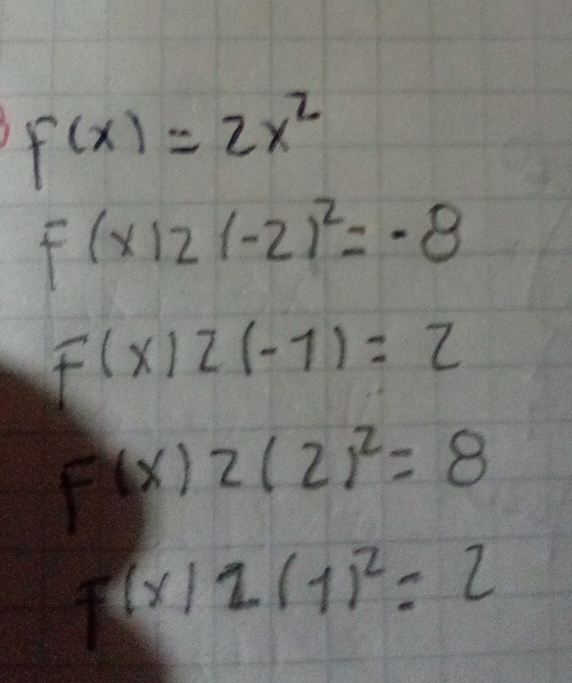 F(x) = 2x²
F(x) 2 (-2)² = -8
F(x) 2 (-1) = 2
F(x) 2 (2)² = 8
F(x) 2 (1)² = 2